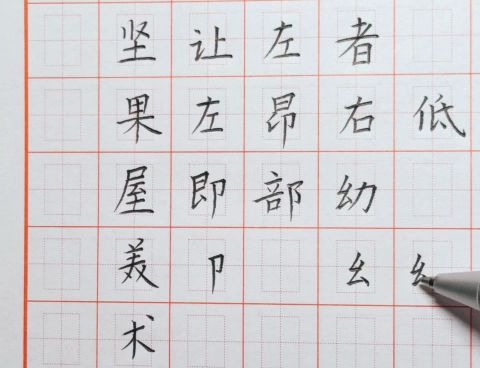 坚让左者
果左昂右低
屋即部幼
美卩幺
术